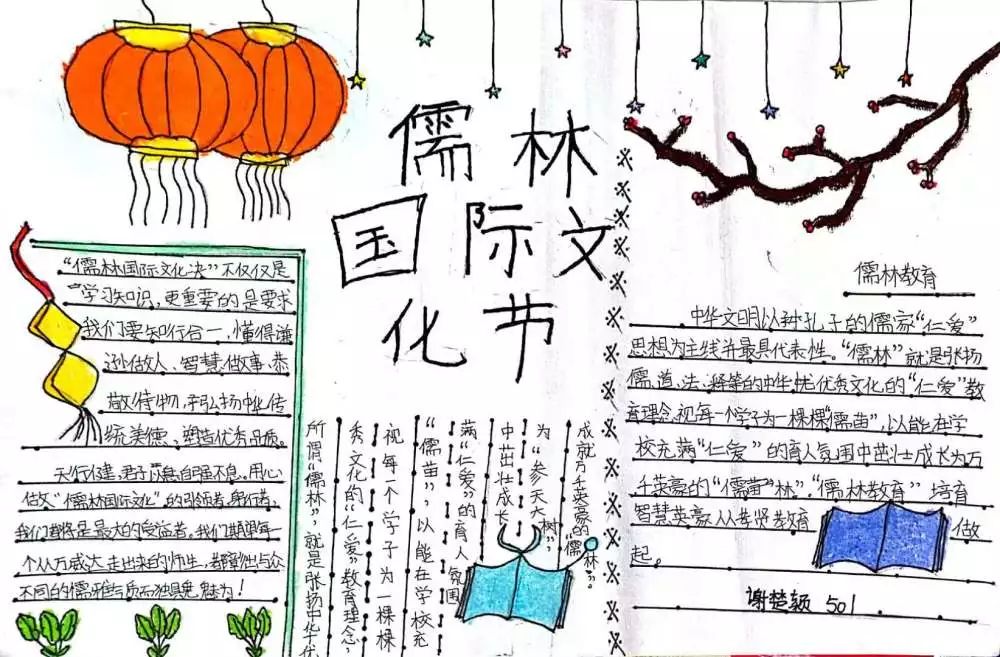 儒林
国际文
化节
“儒林国际文化决”不仅仅是
学习知识，更重要的是要求
我们要知行合一，懂得谦
逊做人、智慧做事、恭
敬待物，弘扬中华传
统美德，塑造优秀品质。
天行健，君子以自强不息。用心
做“儒林国际文化”的引领者、身行者，
我们都将是最大的受益者。我们期
个从万威大走出来的师生，都与众
不同的儒雅气质而独具魅力！
所谓“儒林”，就是张扬中华优
秀文化的“仁爱”教育理念，
视每一个学子为一棵棵
“儒苗”，以能在学校充
满“仁爱”的育人氛围
中茁壮成长
为“参天大树”，
成就万千英豪的“儒林”。
儒林教育
中华文明以孔子的儒家“仁爱”
思想为主线并最具代表性。“儒林”就是张扬
儒、道、法、释等的中华优秀文化的“仁爱”教
育理念，视每一个学子为一棵棵“儒苗”，以能在学
校充满“仁爱”的育人氛围中茁壮成长为万
千英豪的“儒苗”林”。“儒林教育”培育
智慧英豪从孝贤教育做
起。
谢楚颖 501